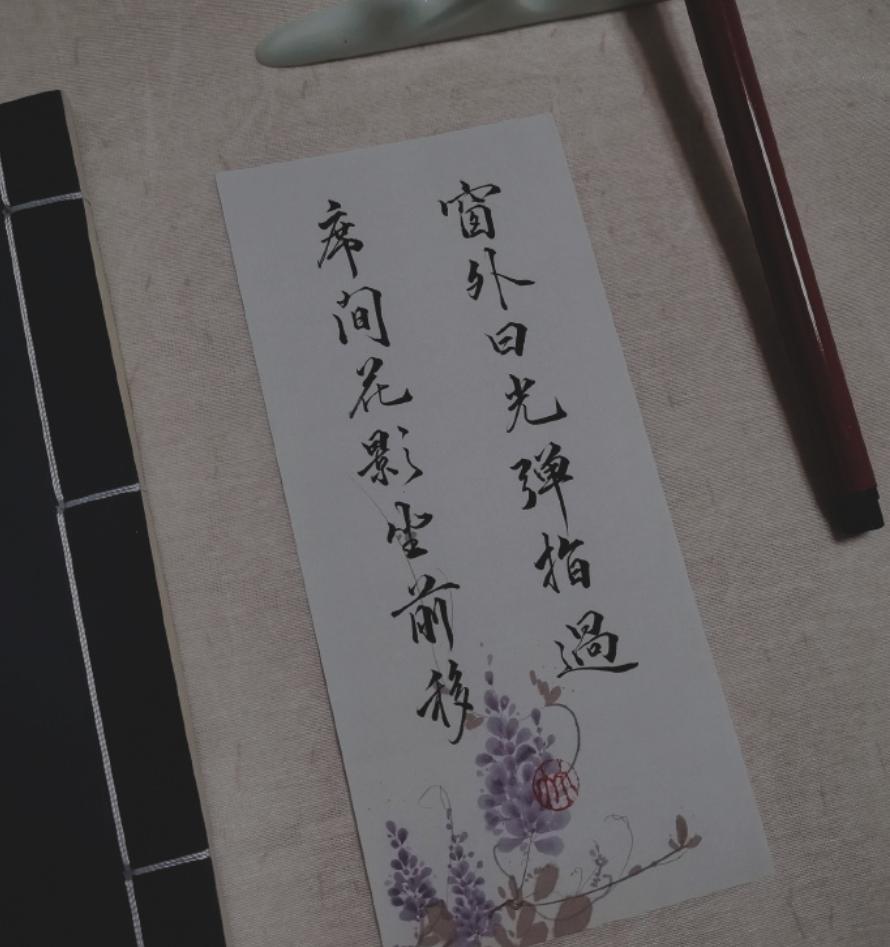 窗外日光弹指過
席间花影坐前移